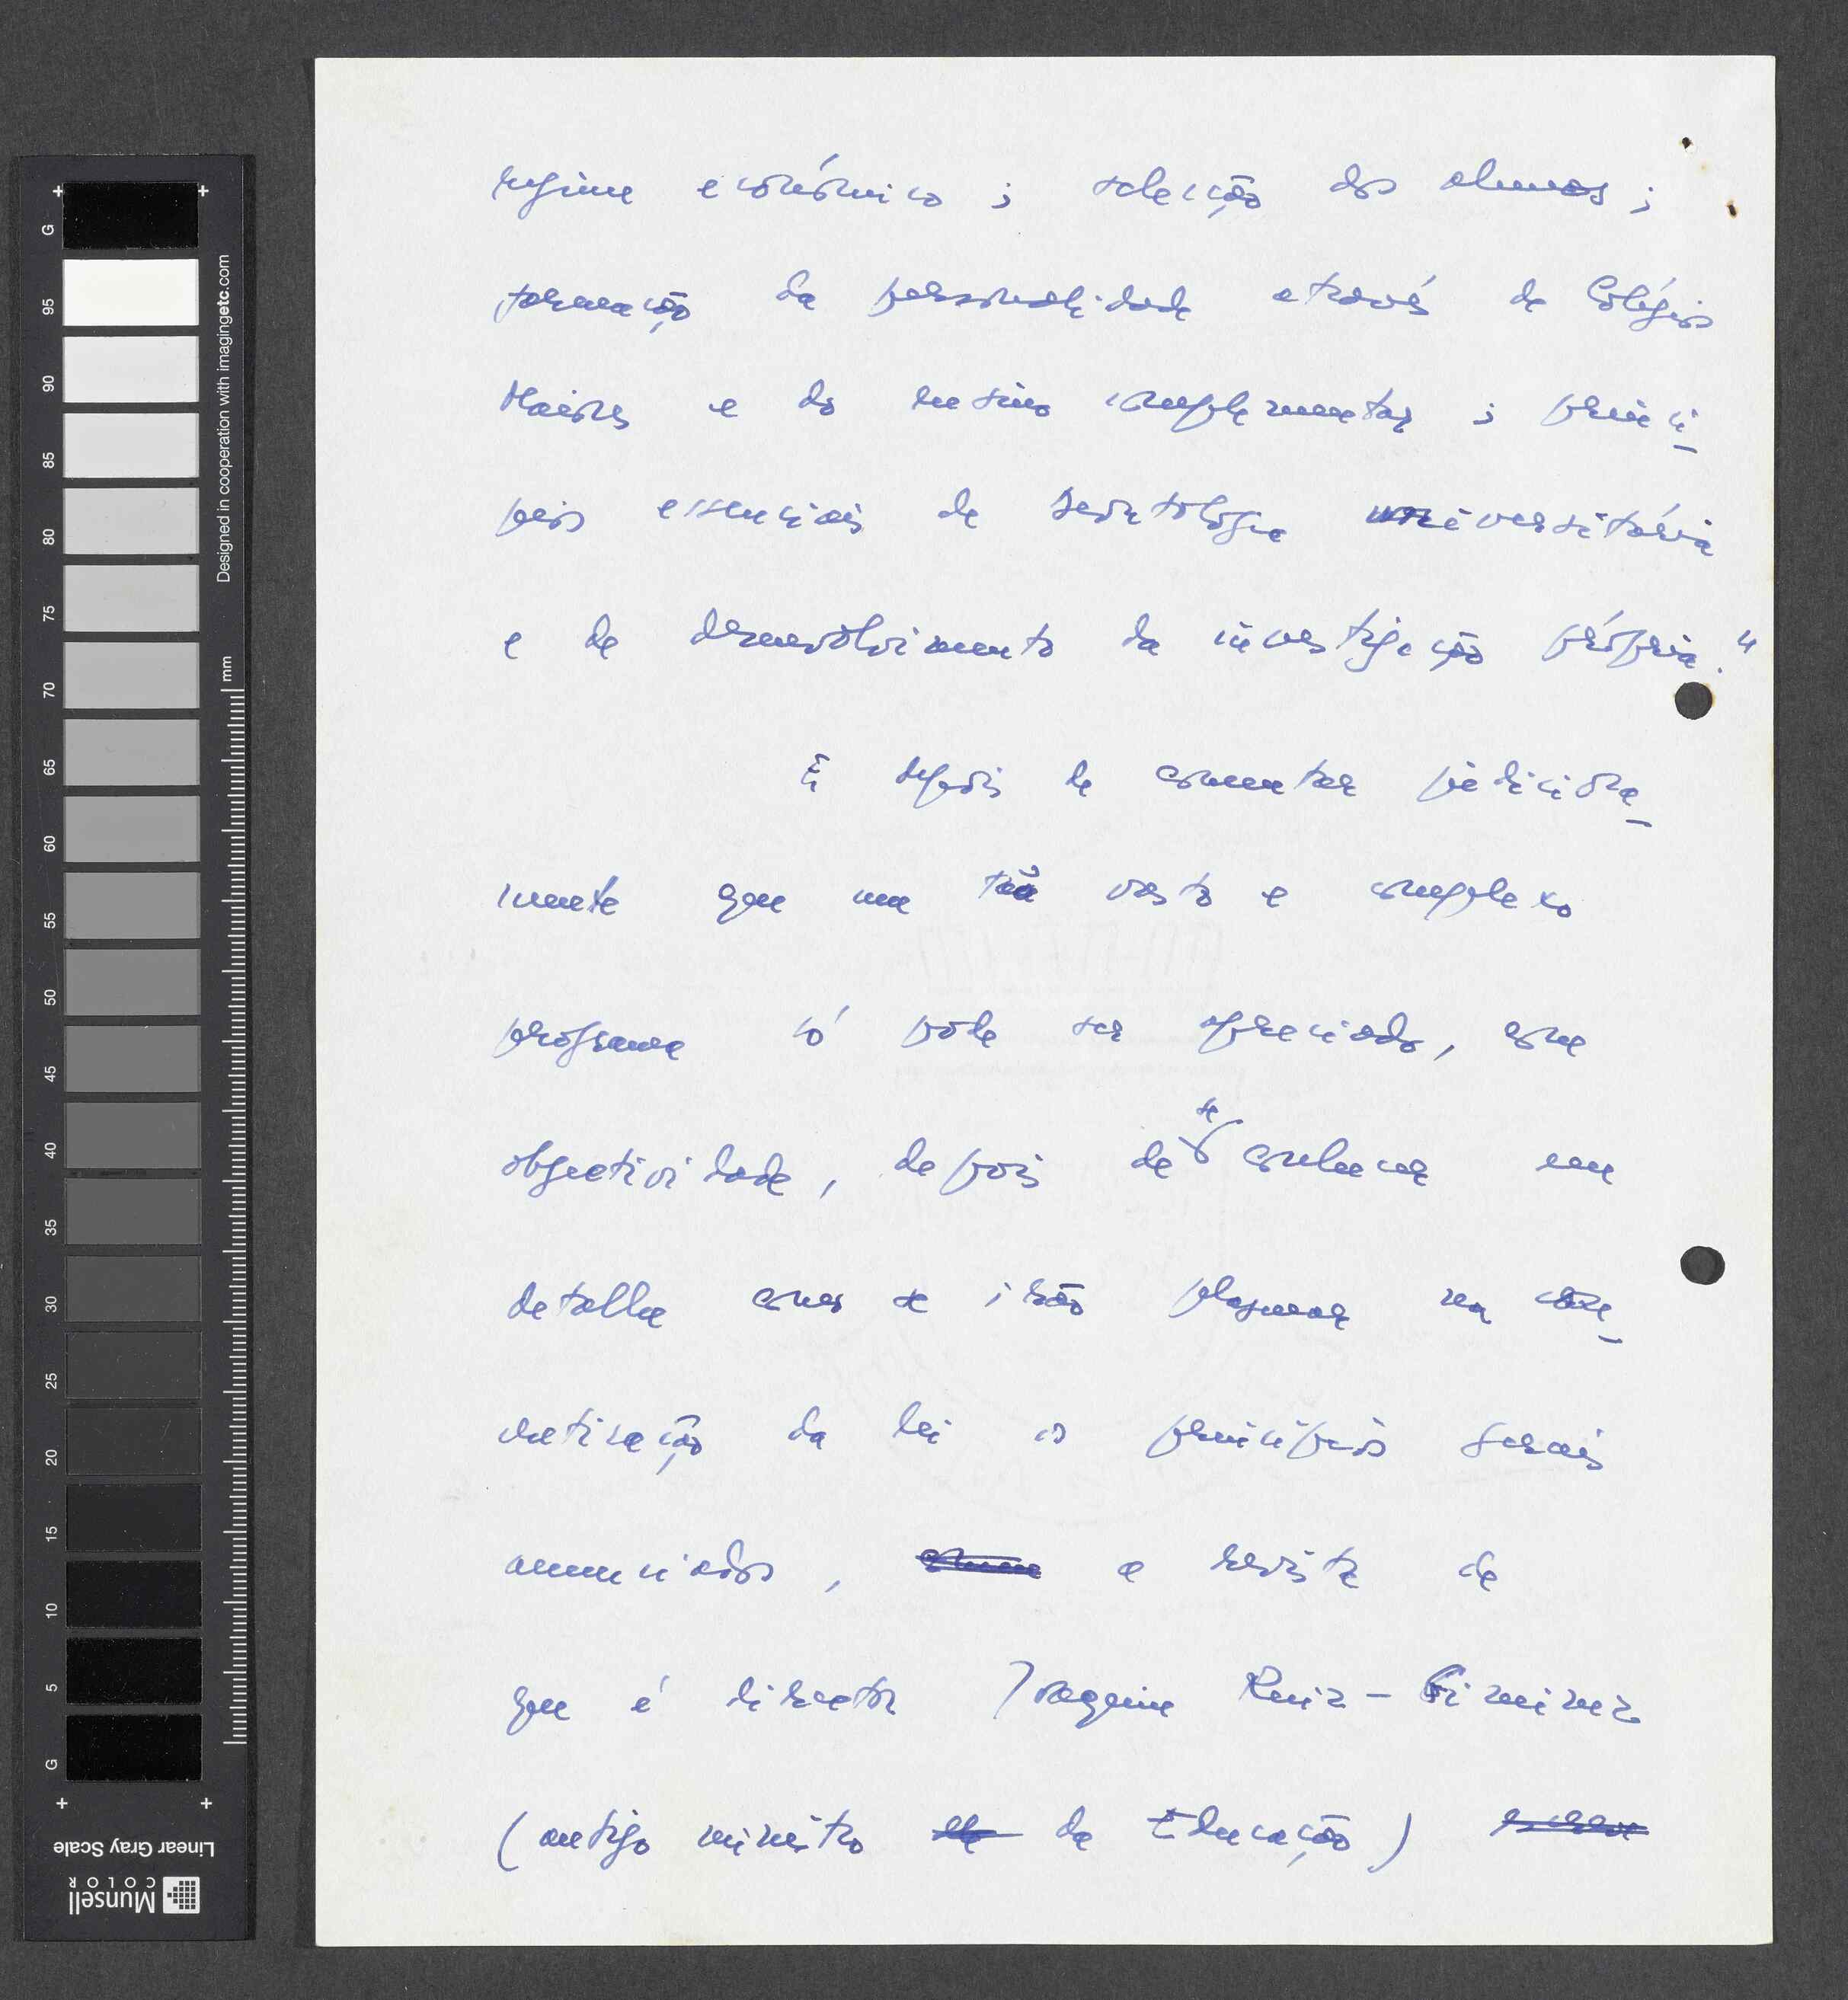 regime económico ; selecção dos alunos ;
formação da personalidade através de Colégios
Maiores e do ensino complementar ; princí-
pios essenciais de deontologia universitária
e de desenvolvimento da investigação própria."
E depois de comentar judiciosa-
mente que um tão vasto e complexo
programa só pode ser apreciado, com
objectividade, depois de se conhecer em
detalhe como se irão plasmar na con-
cretização da lei os princípios gerais
anunciados, a revista de
que é director Joaquin Ruiz-Giménez
(antigo ministro da Educação)
G 95 90 85 80 75 70 65 60 55 50 45 40 35 30 25 20 15 10 5 G
Designed in cooperation with imagingetc.com
mm
Linear Gray Scale
Munsell
COLOR